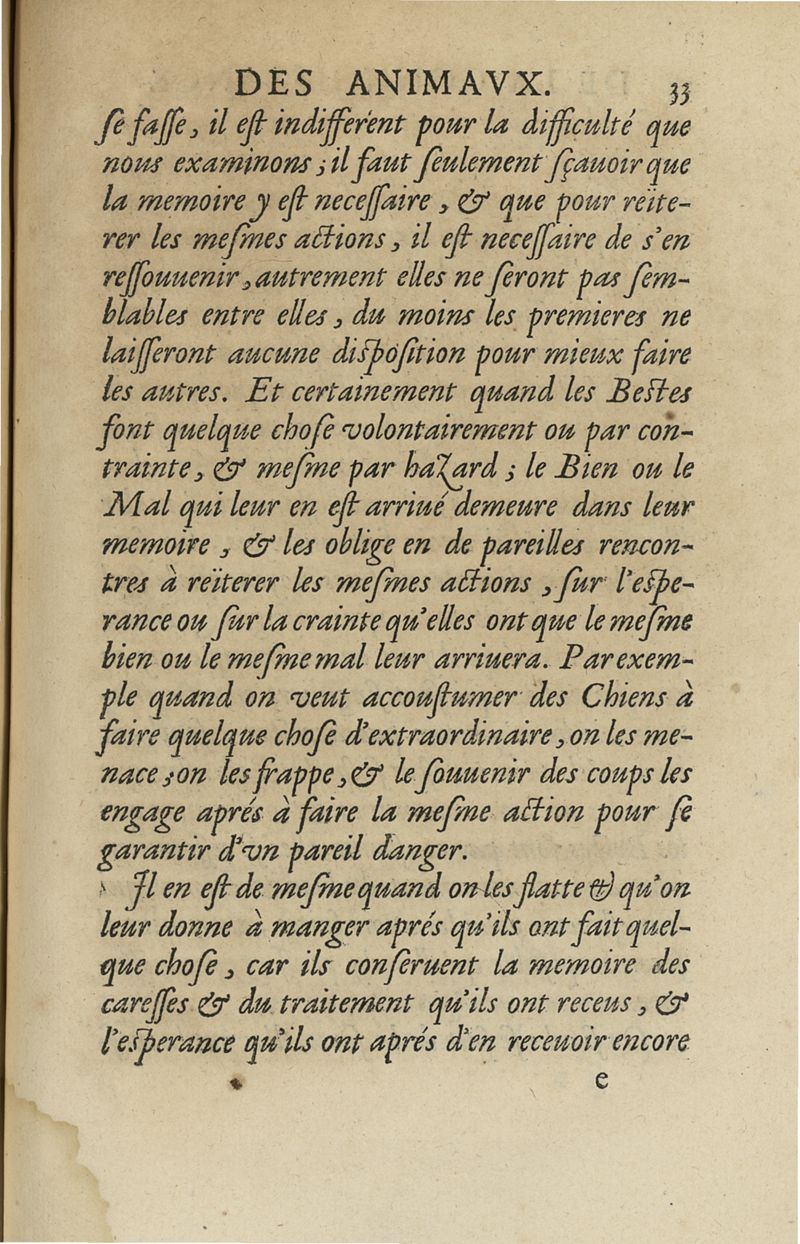 DES ANIMAVX. 33
ſe faſſe, il eſt indifferent pour la difficulté que
nous examinons ; il faut ſeulement ſçauoir que
la memoire y eſt neceſſaire , & que pour reïte-
rer les meſmes actions , il eſt neceſſaire de s'en
reſſouuenir , autrement elles ne ſeront pas ſem-
blables entre elles , du moins les premieres ne
laiſſeront aucune diſpoſition pour mieux faire
les autres. Et certainement quand les Beſtes
font quelque choſe volontairement ou par con-
trainte , & meſme par hazard ; le Bien ou le
Mal qui leur en eſt arriué demeure dans leur
memoire , & les oblige en de pareilles rencon-
tres à reïterer les meſmes actions , ſur l'eſpe-
rance ou ſur la crainte qu'elles ont que le meſme
bien ou le meſme mal leur arriuera. Par exem-
ple quand on veut accouſtumer des Chiens à
faire quelque choſe d'extraordinaire , on les me-
nace ; on les frappe , & le ſouuenir des coups les
engage aprés à faire la meſme action pour ſe
garantir d'vn pareil danger.
Il en eſt de meſme quand on les flatte & qu'on
leur donne à manger aprés qu'ils ont fait quel-
que choſe , car ils conſeruent la memoire des
careſſes & du traitement qu'ils ont receus , &
l'eſperance qu'ils ont aprés d'en receuoir encore
e